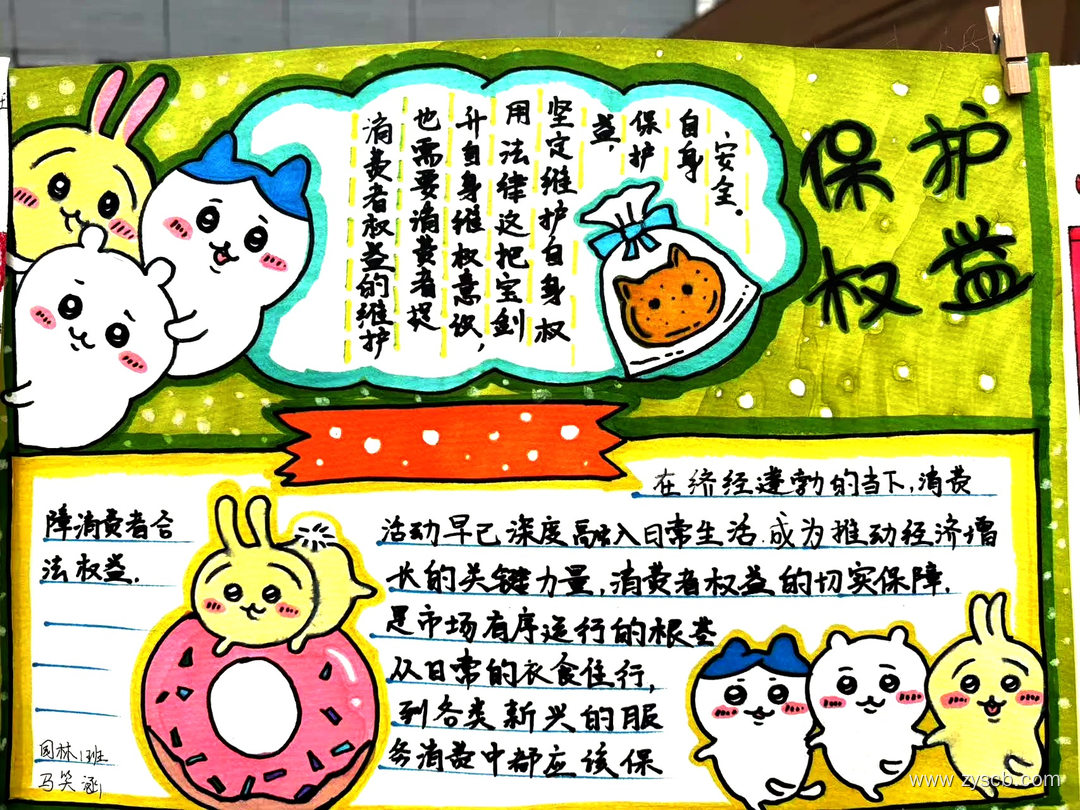 保护
权益
消费者权益的维护
也需要消费者提
升自身维权意识,
用法律这把宝剑
坚定维护自身权
益,
保护
自身
安全。
在济经蓬勃的当下,消费
活动早已深度融入日常生活.成为推动经济增
长的关键力量,消费者权益的切实保障.
是市场有序运行的根基
从日常的衣食住行,
到各类新兴的服
务消费中都应该保
障消费者合
法权益.
园林1班
马笑涵
www.zyscb.com